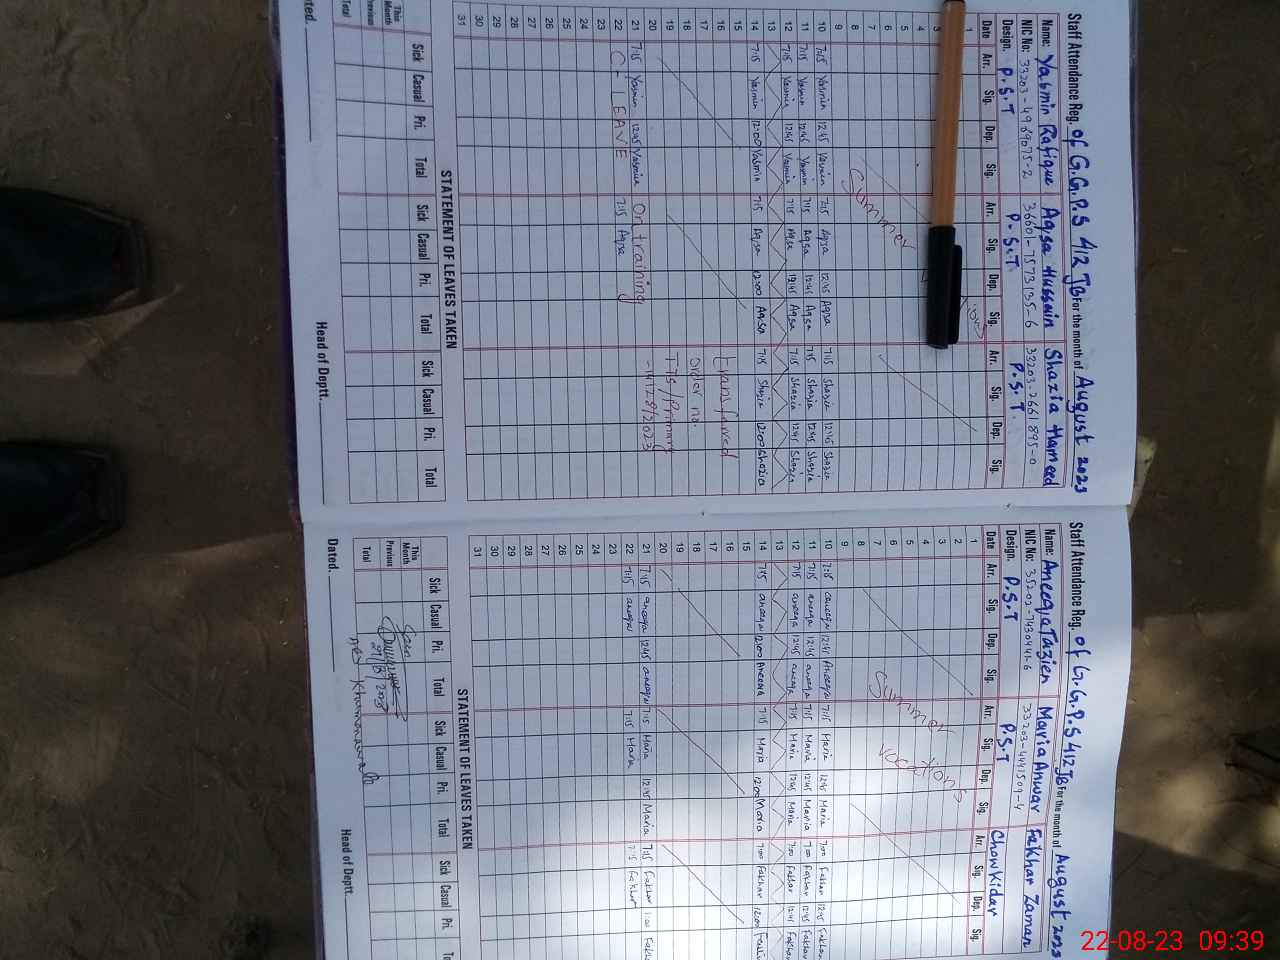 Staff Attendance Reg. of G.G.P.S 412 JB For the month of August 2023
Name: Yasmin Rafique Aqsa Hussain Shazia Hameed
NIC No: 33203-4989075-2 36601-7573135-6 33203-2661895-0
Design. P.S.T P.S.T. P.S.T.
Date Arr. Sig. Dep. Sig. Arr. Sig. Dep. Sig. Arr. Sig. Dep. Sig.
1
3
4
5
6
7
8 Summer
9
10 7:15 Yasmin 12:45 Yasmin 7:15 Aqsa 12:45 Aqsa 7:15 Shazia 12:45 Shazia
11 7:15 Yasmin 12:45 Yasmin 7:15 Aqsa 12:45 Aqsa 7:15 Shazia 12:45 Shazia
12 7:15 Yasmin 12:45 Yasmin 7:15 Aqsa 12:45 Aqsa 7:15 Shazia 12:45 Shazia
13
14 7:15 Yasmin 12:00 Yasmin 7:15 Aqsa 12:00 Aqsa 7:15 Shazia 12:00 Shazia
15
16 Transfered
17
18 order no.
19 TTS/Primary
20
21 7:15 Yasmin 12:45 Yasmin On training
22 C-LEAVE 7:15 Aqsa
23
24
25
26
27
28
29
30
31
STATEMENT OF LEAVES TAKEN
Sick Casual Pri. Total Sick Casual Pri. Total Sick Casual Pri. Total
This Month
Previous
Total
Dated. Head of Deptt.
Staff Attendance Reg. of G.G.P.S 412 JB For the month of August 2023
Name: Aneeqa Tazien Maria Anwar Fakhar Zaman
NIC No: 33203-4441509-4
Design. P.S.T P.S.T Chowkidar
Date Arr. Sig. Dep. Sig. Arr. Sig. Dep. Sig. Arr. Sig. Dep. Sig.
1
2
3
4
5
6
7
8 Summer vacations
9
10 aneeqa 12:45 Aneeqa 7:15 Maria 12:45 Maria 7:00 Fakhar 12:45 Fakhar
11 7:15 aneeqa 12:45 aneeqa 7:15 Maria 12:45 Maria 7:00 Fakhar 12:45 Fakhar
12 7:15 aneeqa 12:45 aneeqa 7:15 Maria 12:45 Maria 7:00 Fakhar 12:45 Fakhar
13
14 7:15 aneeqa 12:00 Aneeqa 7:15 Maria 12:00 Maria 7:00 Fakhar 12:00
15
16
17
18
19
20
21 7:15 aneeqa 12:45 aneeqa 7:15 Maria 12:45 Maria 7:15 Fakhar 1:00
22 7:15 aneeqa 7:15 Maria 7:15 Fakhar
23
24
25
26
27
28
29
30
31
STATEMENT OF LEAVES TAKEN
Sick Casual Pri. Total Sick Casual Pri. Total Sick Casual Pri.
This Month
Previous
Total
Seen
Dated. Head of Deptt.
22-08-23 09:39